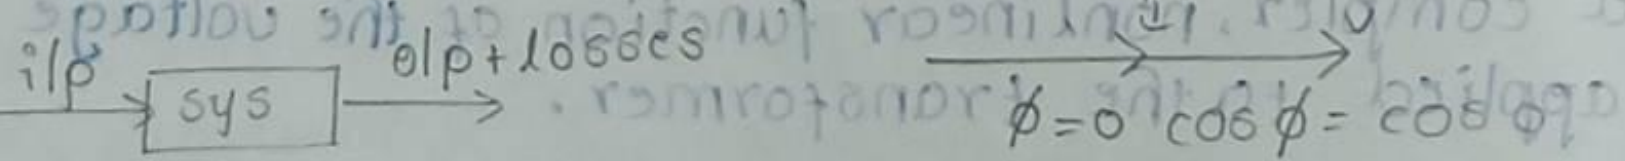 i/p
sys
o/p + losses
I V
φ = 0 cos φ = cos 0